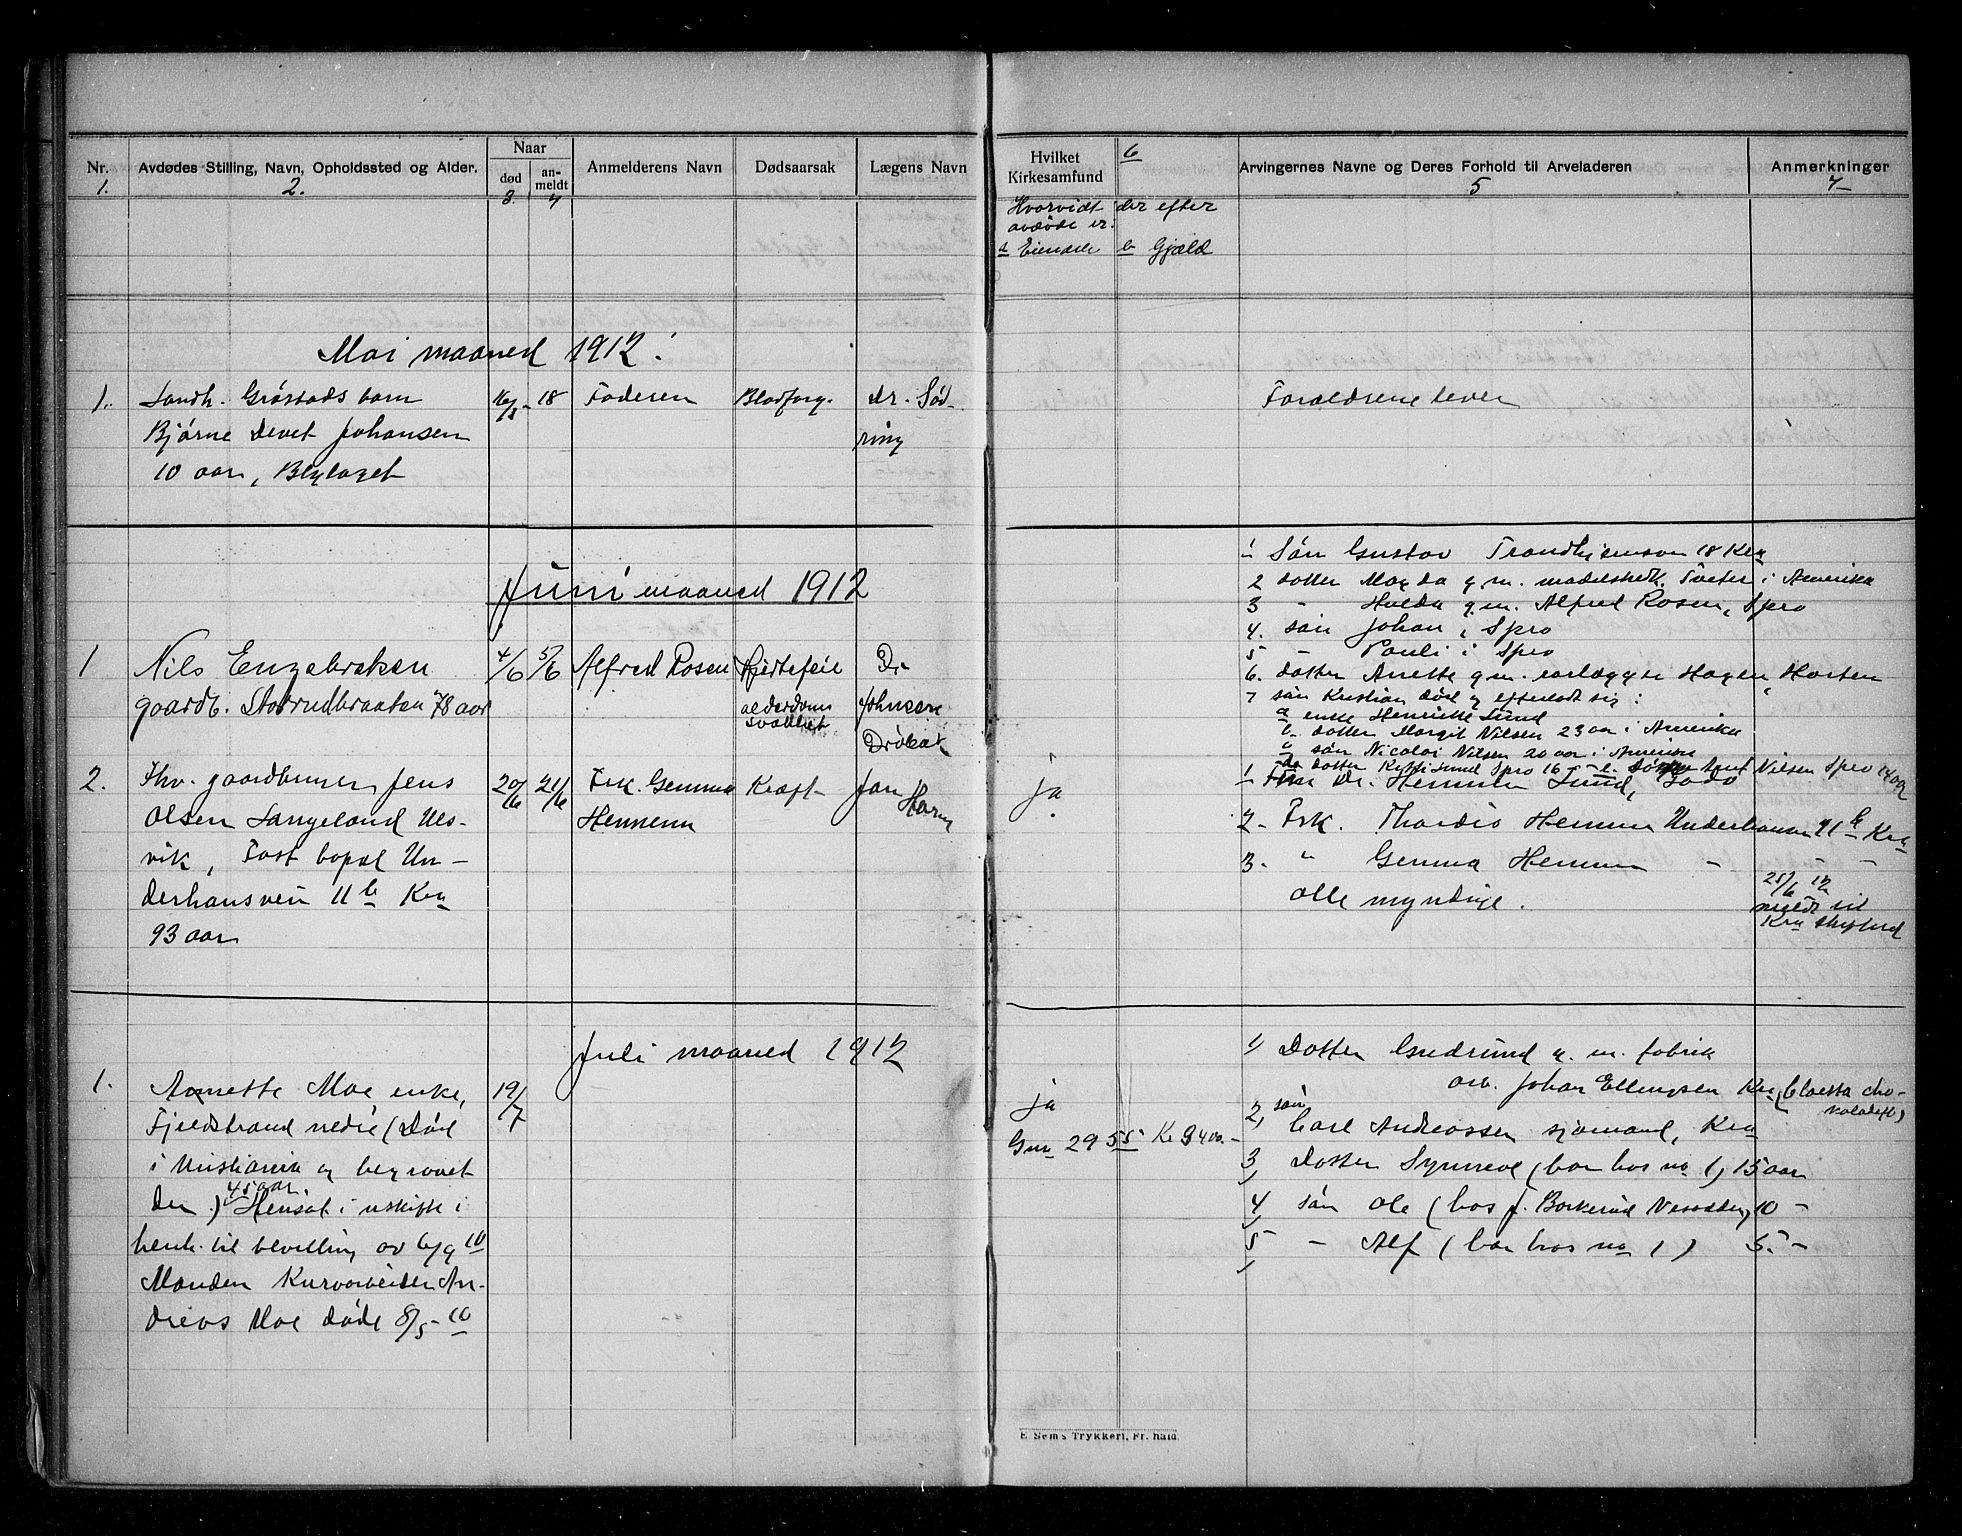 Nr.
1.
Avdødes Stilling, Navn, Opholdssted og Alder.
2.
Naar
død
3.
an-
meldt
4
Anmelderens Navn
Dødsaarsak
Lægens Navn
Hvilket
Kirkesamfund
6
Arvingernes Navne og Deres Forhold til Arveladeren
5
Anmerkninger
7
Hvorvidt der efter
avdøde er:
a Eiendele b Gjæld
Mai maaned 1912.
1. Landh. Grøstads barn 16/5 - 18 Faderen Blodforg. Dr. Sød- Forældrene lever
Bjørne Devet Johansen ring
10 aar, Blylaget
Juni maaned 1912
1 Nils Engebretsen 4/6 5/6 Alfred Rosen Hjertefeil Dr
gaardb. Storrudbraaten 78 aar alderdoms Johnsen
svakhet Drøbak
1 Søn Gustav Trondhjemsvn 18 Kra
2 datter Magda g. m. Tveter i Amerika
3 - Hulda g. m. Alfred Rosen, Spro
4. søn Johan i Spro
5 - Pauli i Spro
6. datter Anette g. m. Hagen, Horten
7 søn Kristian død og efterlodt sig:
a enke Henriette Lund
b datter Margit Nilsen 23 aar i Amerika
c søn Nicolai Nilsen 20 aar i Amerika
d datter Lund Spro 16 - e. Nilsen Spro 14 aar
2. Fhv. gaardbruker Jens 20/6 21/6 Frk. Gemma Kræft Jan ja
Olsen Langeland Uls- Hennum Horn
vik, Fast bopæl Un-
derhausvein 11 b Kra
93 aar
1 Fru Dr. Lund, Bodø
2 - Frk. Thordis Hennum Underhausvn 11 b Kra
3. " Gemma Hennum - - -
alle myndige.
25/6 12
meldt til
Kra Skifteret
Juli maaned 1912
1. Annette Moe enke, 19/7 ja
Fjeldstrand nedre (Død
i Kristiania og begravet
der.) 45 aar Hensat i uskifte i
henh. til bevilling av 6/9 10
Manden Kurvarbeider An-
dreas Moe døde 8/5 - 10
Gno 29 55 Kr 3400.-
1, Datter Gudrund g. m. fabrik
arb. Johan Ellingsen Kra (Cloetta cho-
koladefb)
2, søn Carl Andreassen sjømand, Kra
3, Datter Synneve (bor hos no 1) 15 aar
4, søn Ole (hos J. Borkerud Nesodden) 10 -
5, - Alf (bor hos no 1) 5. -
E. Sem's Trykkeri, Fr. hald.